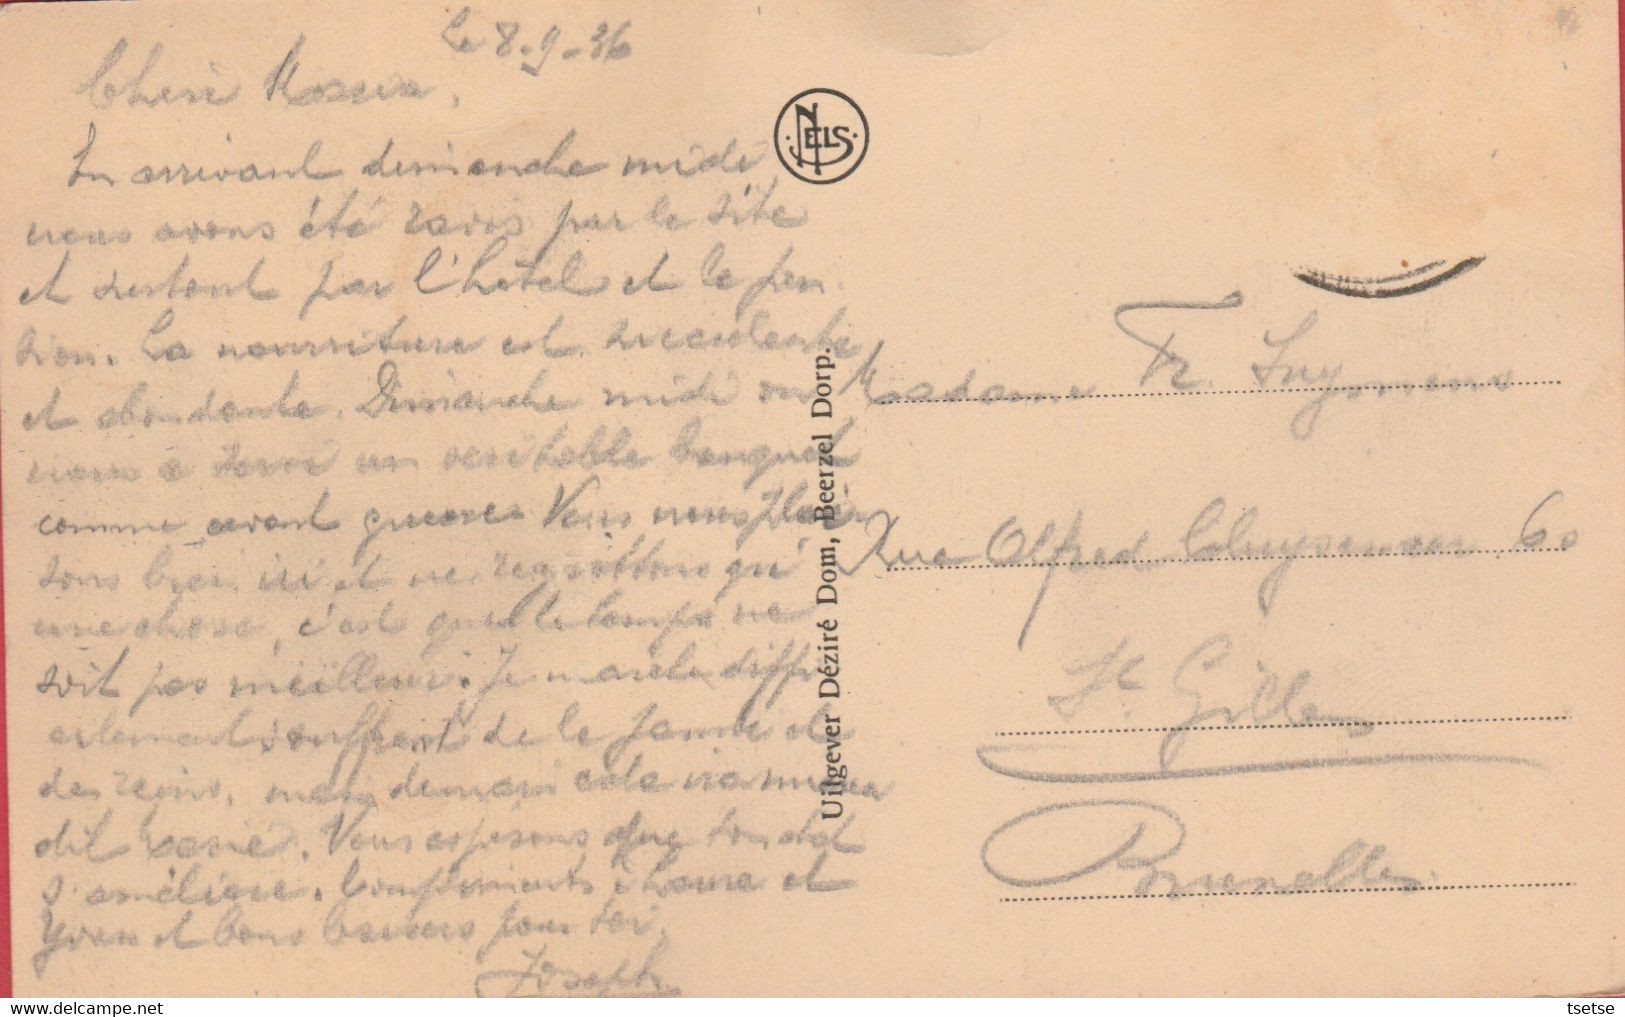 Le 8-9-36
Cheri
En arrivant dimanche midi
nous avons été ravis par le site
et surtout par l'hotel et la pen-
sion. La nourriture est succulente
et abondante. Dimanche midi on
nous a servi un veritable banquet
comme avant guerre. Nous nous plai-
sons bien ici et ne regrettons qu'
une chose, c'est que le temps ne
soit pas meilleur. Je marche diffi-
cilement souffrant de la jambe et
des reins, mais demain cela ira mieux
dit Marie. Nous esperons que ton
s'améliore. Compliments à et
Yvan et bons baisers pour toi.
Joseph
NELS
Uitgever Déziré Dom, Beerzel Dorp.
Madame Fr.
Rue Alfred Cluysenaar, 60
St. Gilles
Bruxelles
tsetse